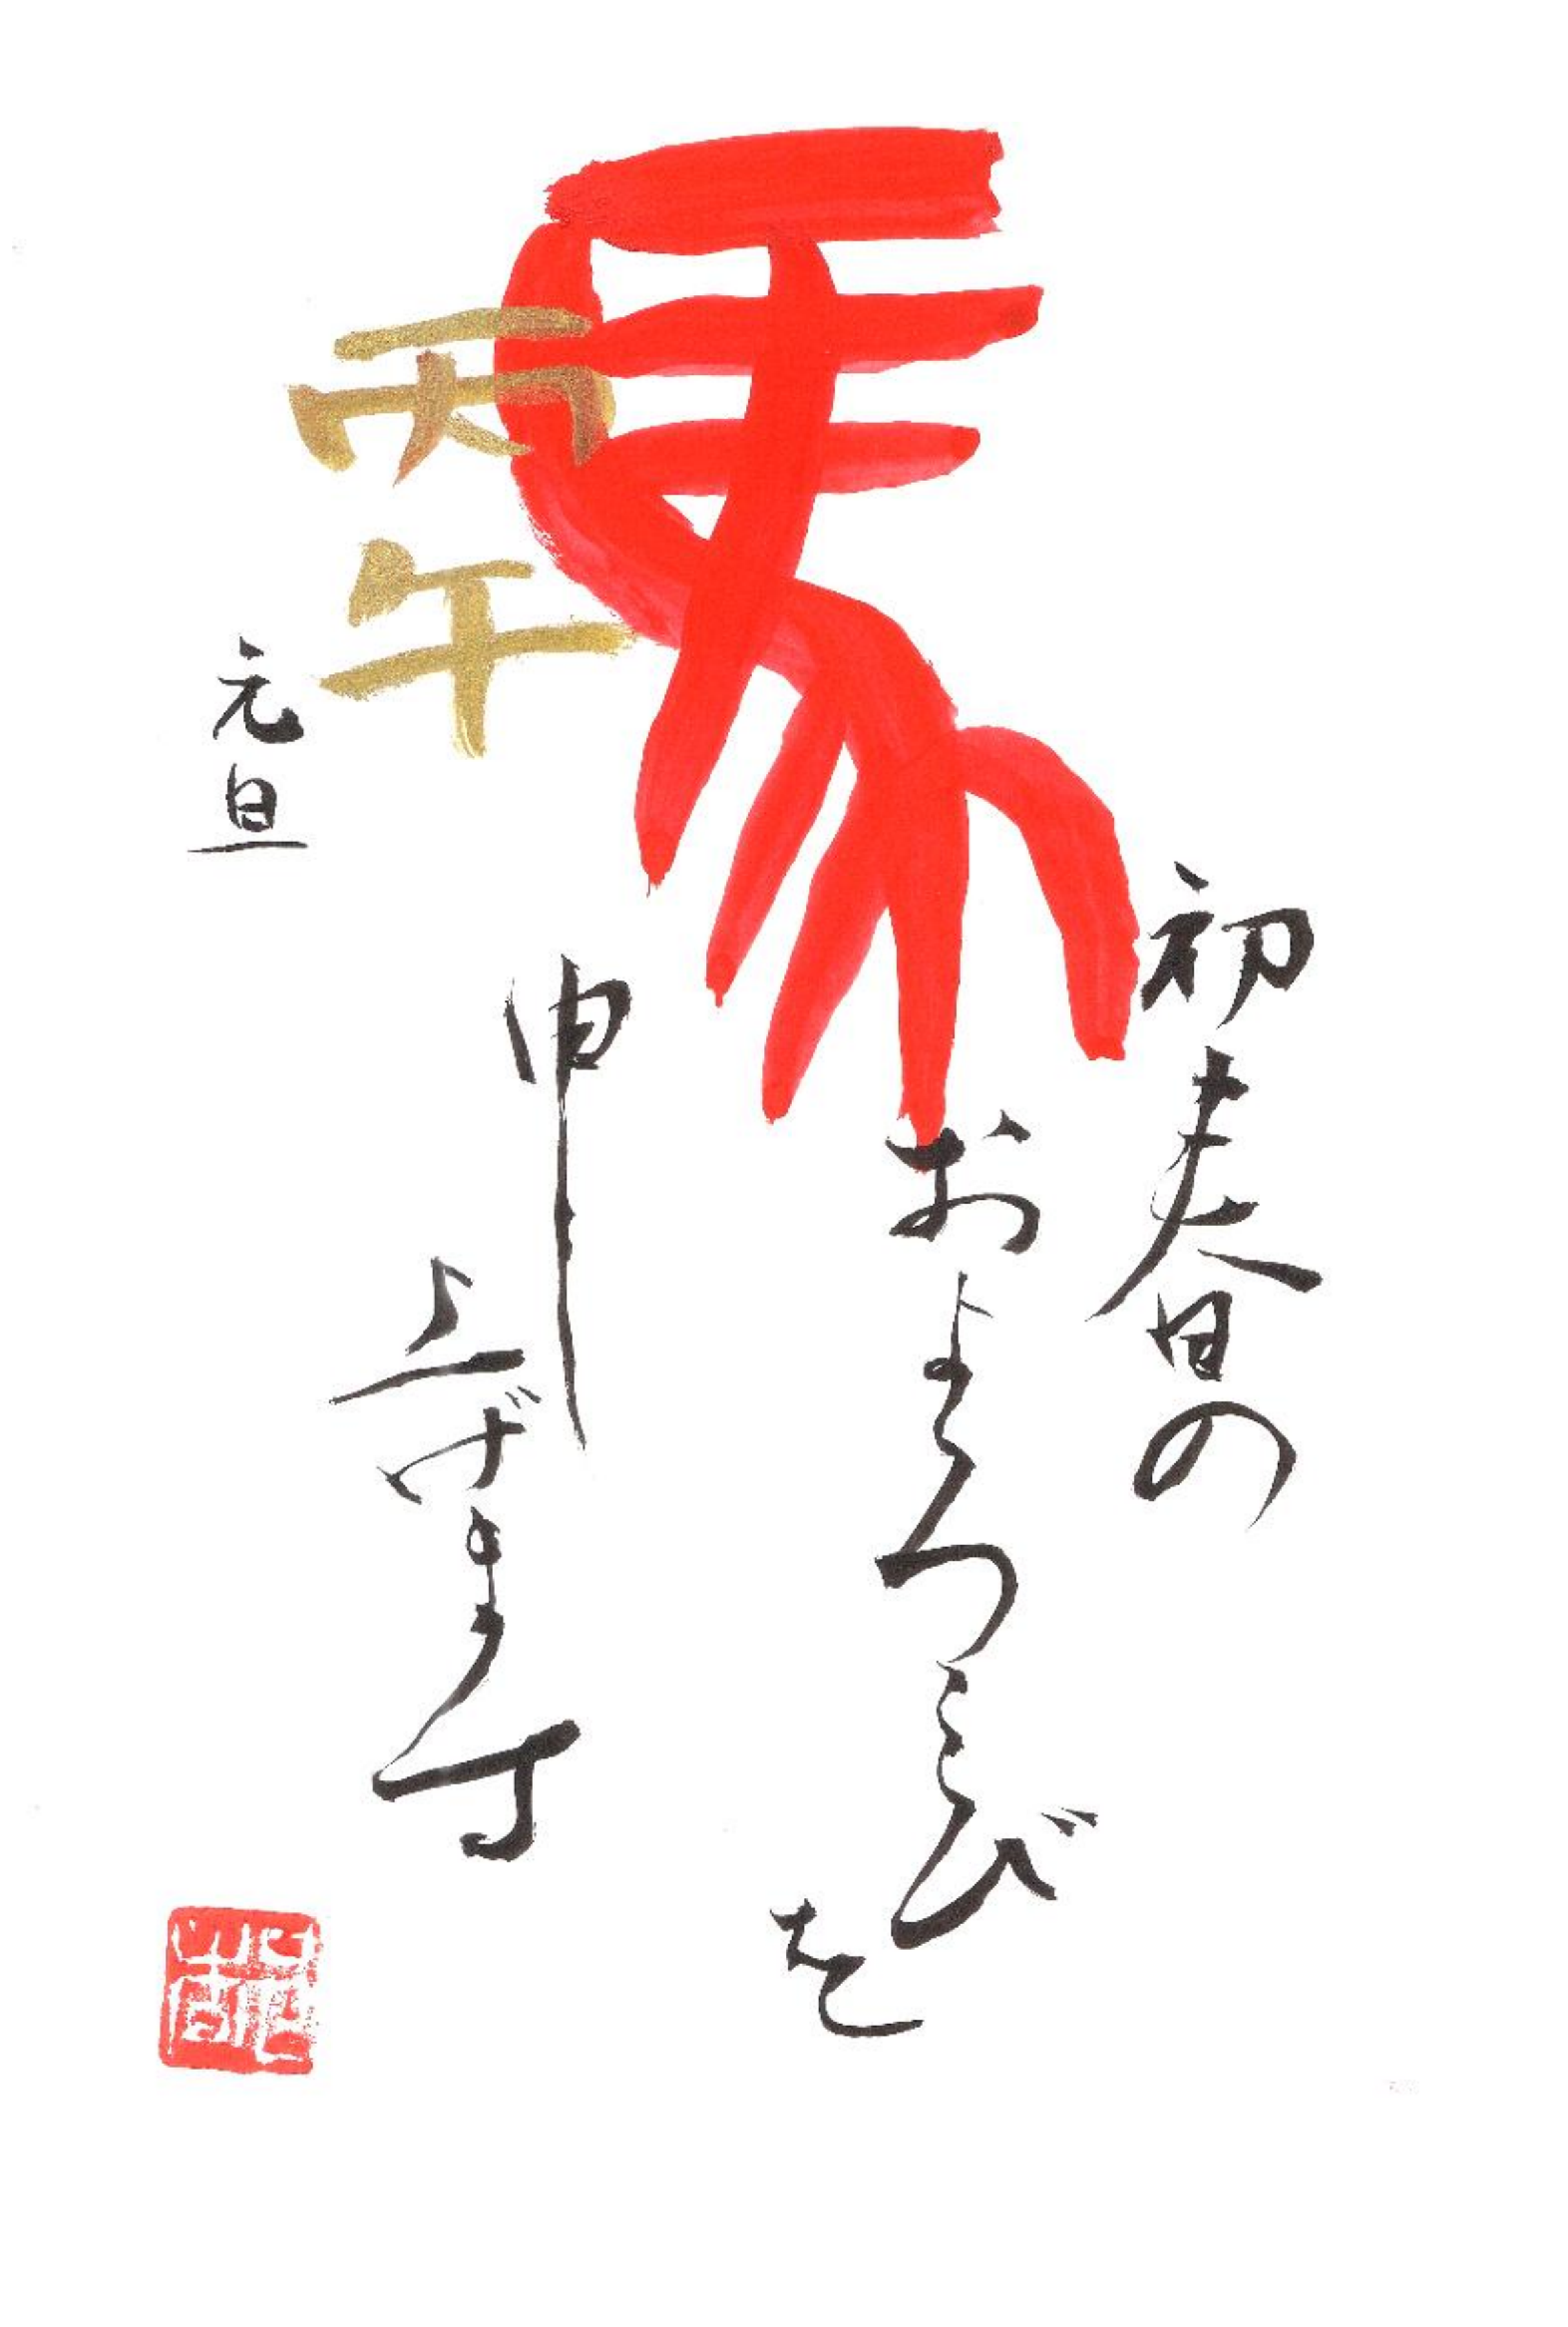 馬
初春の
およろこびを
申し
上げます
丙午
元旦